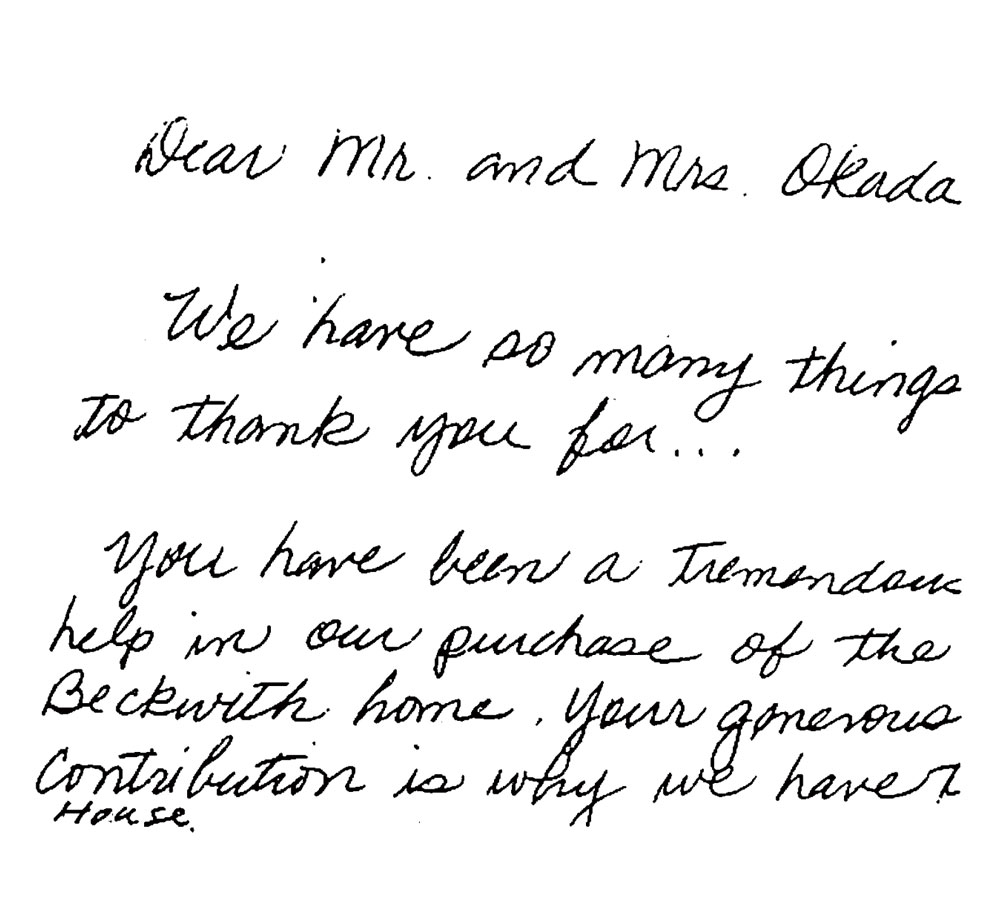 Dear Mr. and Mrs. Okada
We have so many things
to thank you for...
You have been a tremendous
help in our purchase of the
Beckwith home. Your generous
contribution is why we have
House.